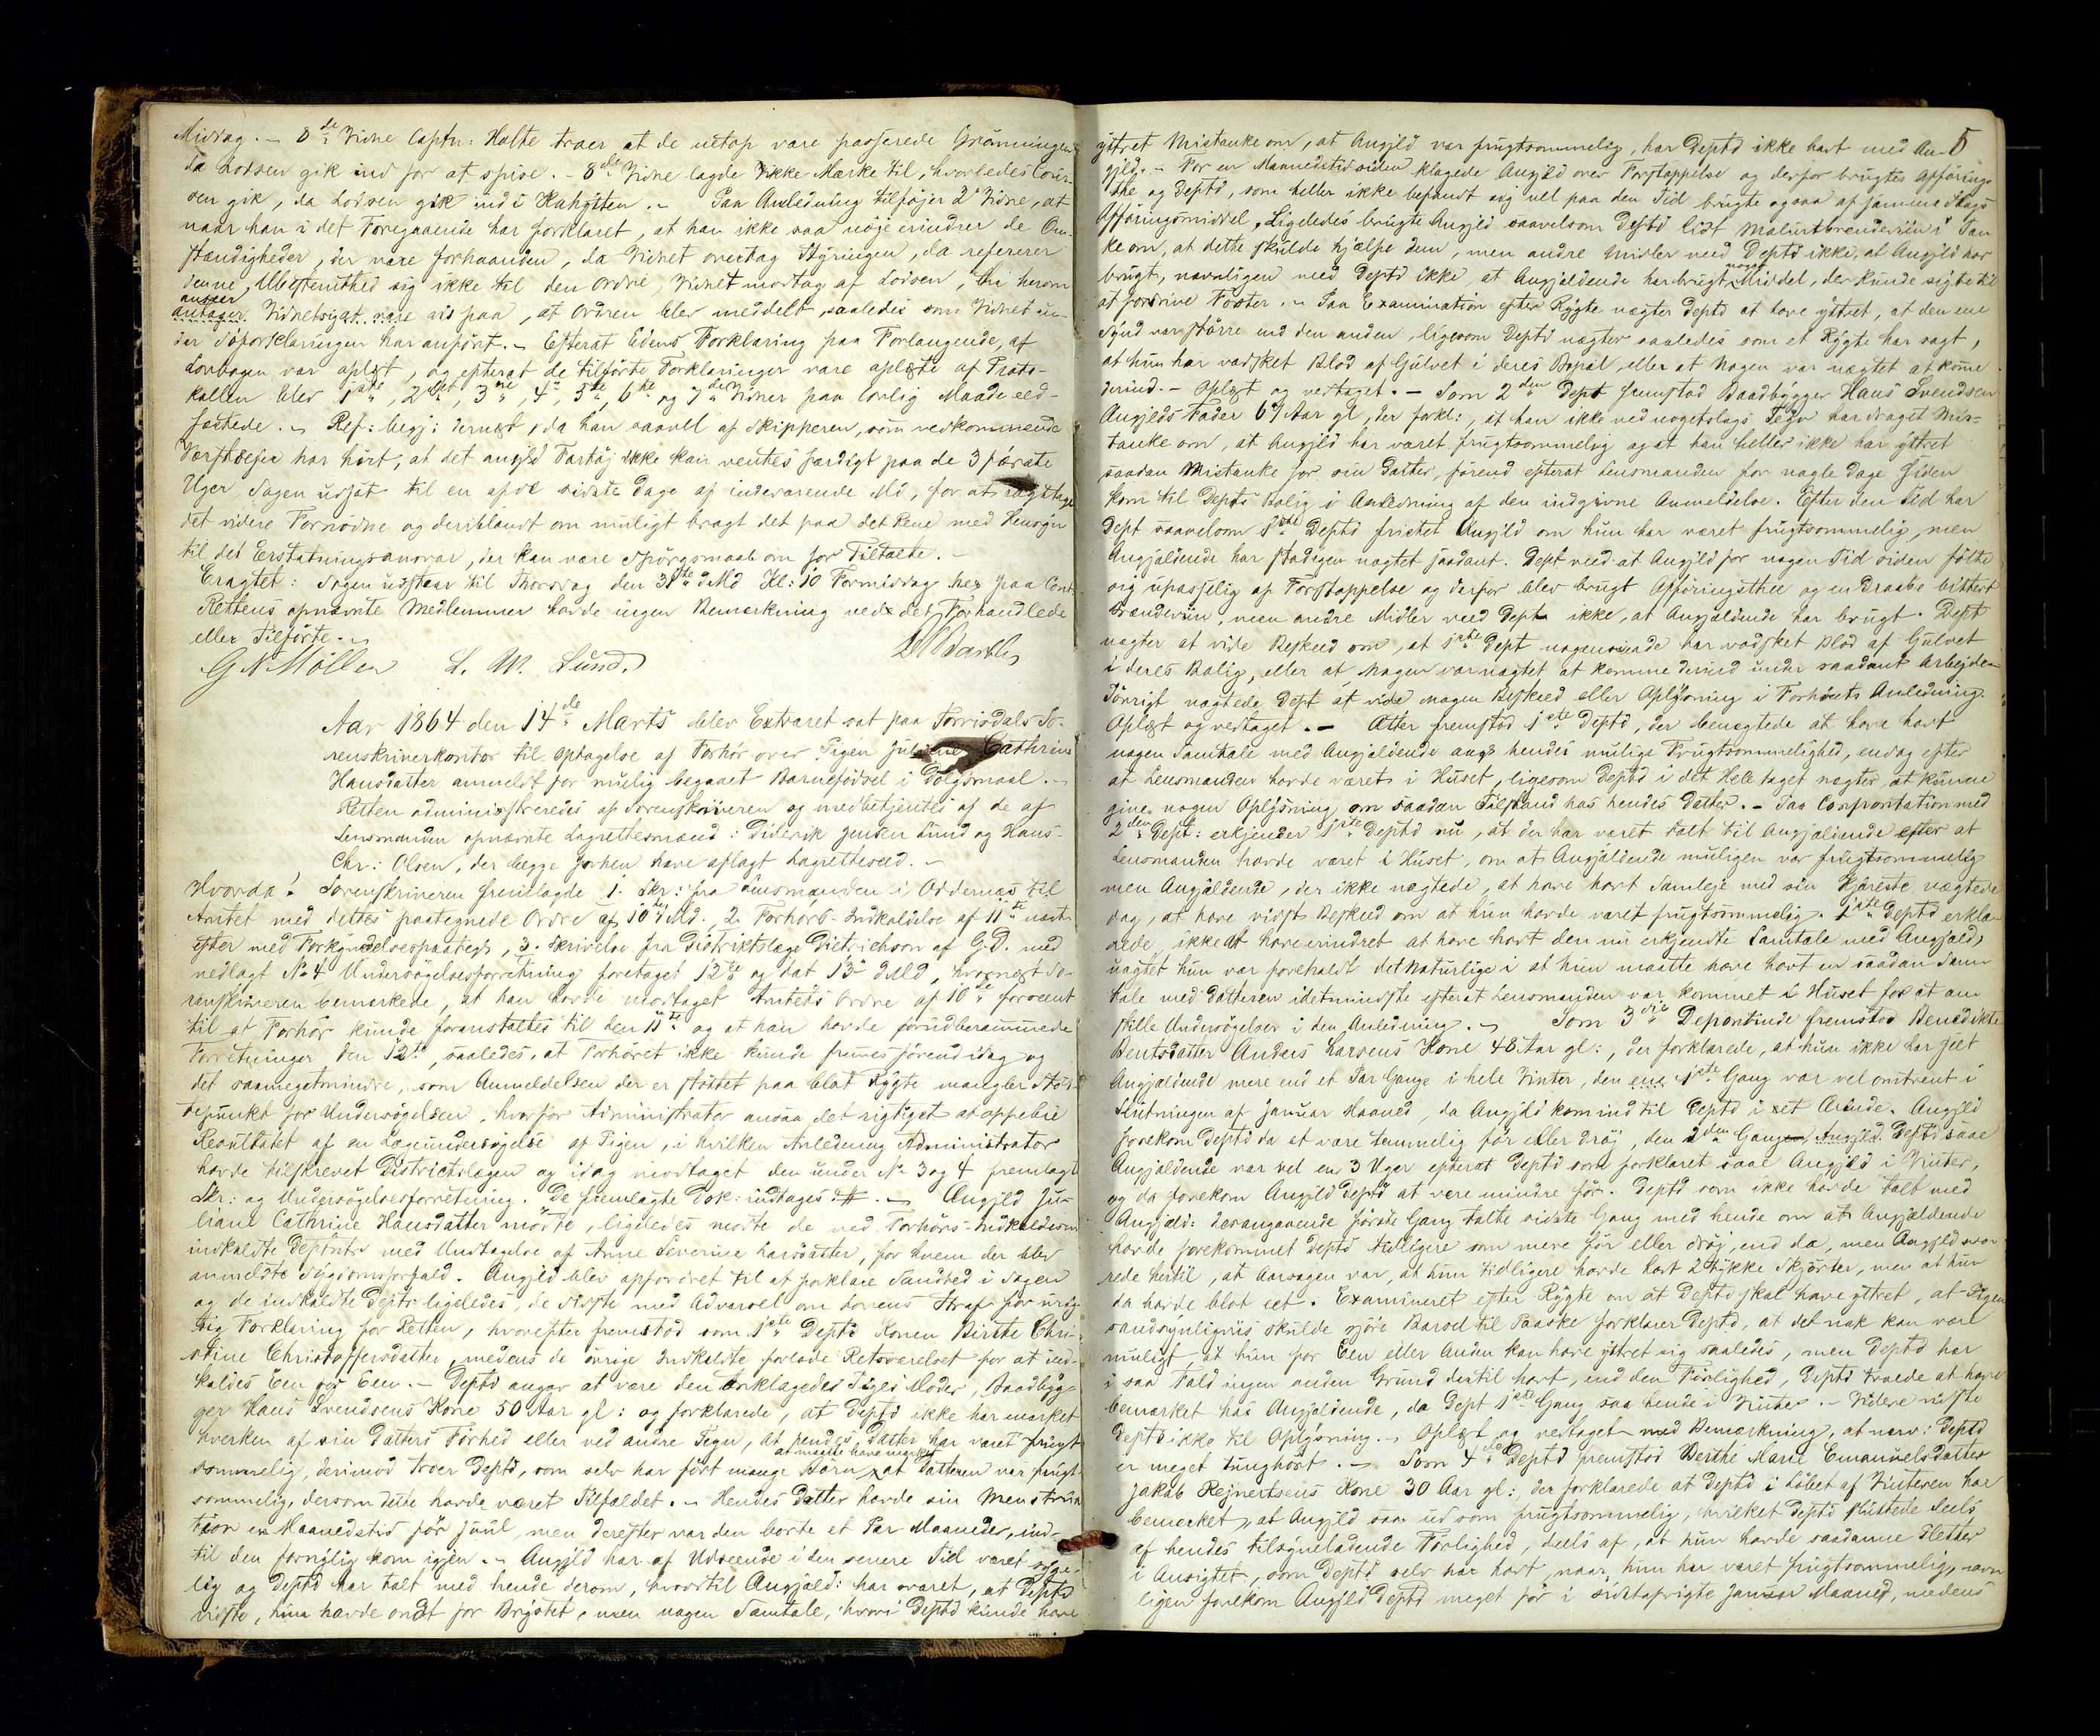 Middag. – 3de Vidne Captn: Holte troer at de netop vare passerede Grønningen
da Lodsen gik ind for at spise. – 3de Vidne lagde ikke Mærke til, hvorledes Cour-
sen gik, da Lodsen gik ind i Kahytten. – Paa Anledning tilføjer 2d Vidne, at
naar han i det Foregaaende har forklaret, at han ikke saa nøje erindrer de Om-
stændigheder, der vare forhaanden, da Vidnet overtog Styringen, da refererer
denne Ubestemthed sig ikke til den Ordre, Vidnet modtog af Lodsen, thi herom
anseer
antager Vidnet sig at være vis paa, at Ordren blev meddelt saaledes som Vidnet un-
der Søforklaringen har anført. – Efterat Edens Forklaring paa Forlangende, af
Lovbogen var oplæst, og efterat de tilførte Forklaringer vare oplæste af Proto-
kollen blev 1ste, 2det, 3die, 4de, 5te, 6te og 7de Vidner paa lovlig Maade eed-
fæstede. – Ref: begj: dernæst, da han saavel af Skipperen, som vedkommende
Værftseier har hørt, at det angjd Fartøj ikke kan ventes færdigt paa de 3 første
Uger, Sagen udsat til en af de sidste Dage af indeværende Md, for at iagttage
det videre Fornødne og deriblandt om muligt bragt det paa det Rene med Hensyn
til det Erstatningsansvar, der kan være Spørgsmaal om for Tiltalte. –
Eragtet: Sagen udstaar til Thorsdag den 31te d Md Kl: 10 Formiddag her paa Cont.
Rettens opnævnte Medlemmer havde ingen Bemærkning ved det Forhandlede
eller Tilførte. –
G N Møller L. W. Lund.
Aar 1864 den 14de Marts blev Extraret sat paa Torrisdals So-
renskriverkontor til Optagelse af Forhør over Pigen Juliane Cathrine
Hansdatter anmeldt for mulig begaaet Barnefødsel i Dølgsmaal. –
Retten administreredes af Sorenskriveren og medbetjentes af de af
Lensmanden opnævnte Lagrettesmænd: Diderik Jensen Lund og Hans
Chr: Olsen, der begge forhen have aflagt Lagretteseed. –
Hvorda! Sorenskriveren fremlagde 1. Skr: fra Lensmanden i Oddernæs til
Amtet med dettes paategnede Ordre af 10de d Md. 2. Forhørs-Indkaldelse af 11te næst
efter med Forkyndelsespaategn, 3. Skrivelse fra Distriktslæge Dietrichson af G. D. med
vedlagt No 4 Undersøgelsesforretning foretaget 12te og dat 13de d Md, hvornæst So-
renskriveren bemærkede, at han havde modtaget Amtets Ordre af 10de forocent
til at Forhør kunde foranstaltes til den 11te og at han havde forudberammede
Forretninger den 12te, saaledes, at Forhøret ikke kunde fremmes førend idag og
det saameget mindre, som Anmeldelsen der er støttet paa blot Rygte mangler Støt-
tepunkt for Undersøgelsen, hvorfor Administrator ansaa det rigtigst at oppebie
Resultatet af en Lægeundersøgelse af Pigen, i hvilken Anledning Administrator
havde tilskrevet Districtslægen og idag modtaget den under No 3 og 4 fremlagt
Skr: og Undersøgelsesforretning. De fremlagte Dok: indtages #. – Angjld Ju-
liane Cathrine Hansdatter mødte, ligeledes mødte de ved Forhørs-Indkaldelsen
indkaldte Depntr med Undtagelse af Anne Severine Larsdatter, for hvem der blev
anmeldte Sygdomsforfald. Angjld blev opfordret til at forklare Sandhed i Sagen
og de indkaldte Deptr ligeledes, de sidste med Advarsel om Lovens Straf for urig-
tig Forklaring for Retten, hvorefter fremstod som 1ste Deptd Konen Birthe Chri-
stine Christoffersdatter, medens de øvrige Indkaldte forlode Retsværelset for at ind-
kaldes Een for Een. – Deptd angav at være den anklagedes Piges Moder, Baadbyg-
ger Hans Svendsens Kone 50 Aar gl: og forklarede, at Deptd ikke har mærket
hverken af sin Datters Førhed eller ved andre Tegn, at hendes Datter har været frugt-
at maatte have mærket
sommelig, derimod troer Deptd, som selv har født mange Børn, at Datteren var frugt-
sommelig, dersom dette havde været Tilfældet. – Hendes Datter havde sin Menstrua-
tion en Maanedstid før Juul, men derefter var den borte et Par Maaneder, ind-
til den fornylig kom igjen. – Angjld har af Udseende i den senere Tid været syge-
lig og Deptd har talt med hende derom, hvortil Angjæld: har svaret, at Deptd
vidste, hun havde ondt for Brystet, men nogen Samtale, hvori Deptd kunde have
5
yttret Mistanke om, at Angjld var frugtsommelig, har Deptd ikke havt med An-
gjld. – For en Maanedstid siden klagede Angjld over Forstoppelse og derfor brugtes Afførings-
the og Deptd, som heller ikke befandt sig vel paa den Tid brugte ogsaa af samme Slags
Afføringsmiddel. Ligeledes brugte Angjld saavelsom Deptd lidt Malurtbrændeviin i Tan-
ke om, at dette skulde hjælpe dem, men andre Midler veed Deptd ikke, at Angjld har
brugt, navnligen veed Deptd ikke, at Angjældende har brugt noget Middel, der kunde sigte til
at fordrive Foster. – Paa Examination efter Rygte nægter Deptd at have yttret, at den ene
Synd var større end den anden, ligesom Deptd nægter saaledes som et Rygte har sagt,
at hun har vadsket Blod af Gulvet i deres Bopæl, eller at Nogen var nægtet at komme
derind. – Oplæst og vedtaget. – Som 2den Dept fremstod Baadbygger Hans Svendsen
Angjlds Fader 67 Aar gl, der forkl:, at han ikke ved nogetslags Tegn har draget Mis-
tanke om, at Angjld har været frugtsommelig og at han heller ikke har yttret
saadan Mistanke for sin Datter, førend efterat Lensmanden for nogle Dage siden
kom til Depts Bolig i Anledning af den indgivne Anmeldelse. Efter den Tid har
Dept saavelsom 1ste Deptd fristet Angjld om hun har været frugtsommelig, men
Angjældende har stadigen nægtet saadant. Dept veed at Angjld for nogen Tid siden følte
sig upasselig af Forstoppelse og derfor blev brugt Afføringsthee og en Draabe bittert
Brændeviin, men andre Midler veed Dept ikke, at Angjældende har brugt. Dept
nægter at vide Beskeed om, at 1ste Dept nogensinde har vadsket Blod af Gulvet
i deres Bolig, eller at Nogen var nægtet at komme derind under saadant Arbejde.
Iøvrigt nægtede Dept at vide nogen Beskeed eller Oplysning i Forhørets Anledning.
Oplæst og vedtaget. – Atter fremstod 1ste Deptd, der benægtede at have havt
nogen Samtale med Angjældende ang: hendes mulige Frugtsommelighed, endog efter
at Lensmanden havde været i Huset, ligesom Deptd i det Hele taget nægter at kunne
give nogen Oplysning om saadan Tilstand hos hendes Datter. – Paa Confrontation med
2den Dept: erkjender 1ste Deptd nu, at der har været talt til Angjældende efter at
Lensmanden havde været i Huset, om at Angjældende muligen var frugtsommelig
men Angjældende, der ikke nægtede, at have havt Samleje med sin Kjæreste, nægtede
dog, at have vidst Beskeed om at hun havde været frugtsommelig. 1ste Deptd erklæ-
rede, ikke at have erindret at have havt den nu erkjendte Samtale med Angjæld,
uagtet hun var foreholdt det Naturlige i at hun maatte have havt en saadan Sam-
tale med Datteren idetmindste efterat Lensmanden var kommet i Huset for at an-
stille Undersøgelser i den Anledning. – Som 3die Deponentinde fremstod Benedikte
Berntsdatter Anders Larsens Kone 48 Aar gl:, der forklarede, at hun ikke har seet
Angjældende mere end et Par Gange i hele Vinter, den ene 1ste Gang var vel omtrent i
Slutningen af Januar Maaned, da Angjld kom ind til Deptd i et Ærinde. Angjld
forekom Deptd da at være temmelig før eller drøj den 2den Gang Angjld. Deptd saae
Angjældende var vel en 3 Uger efterat Deptd som forklaret saae Angjld i Vinter,
og da forekom Angjld Deptd at være mindre før. Deptd som ikke havde talt med
Angjæld: derangaaende første Gang talte sidste Gang med hende om at Angjældende
havde forekommet Deptd tidligere som mere før eller drøj, end da, men Angjld sva-
rede hertil, at Aarsagen var, at hun tidligere havde havt 2 tykke Skjørter, men at hun
da havde blot eet. Examineret efter Rygte om at Deptd skal have yttret, at Pigen
sandsynligviis skulde gjøre Barsel til Paaske forklarer Deptd, at det nok kan være
muligt, at hun for Een eller Anden kan have yttret sig saaledes, men Deptd har
i saa Fald ingen anden Grund dertil havt, end den Førlighed, Deptd troede at have
bemærket hos Angjældende, da Dept 1ste Gang saa hende i Vinter. – Videre vidste
Deptd ikke til Oplysning. – Oplæst og vedtaget med Bemærkning, at nærv: Deptd
er meget tunghørt. – Som 4de Deptd fremstod Berthe Marie Emanuelsdatter
Jakob Rejnertsens Kone 30 Aar gl: der forklarede at Deptd i Løbet af Vinteren har
bemærket, at Angjld saa ud som frugtsommelig, hvilket Deptd sluttede deels
af hendes tilsyneladende Førlighed, deels af, at hun havde saadanne Pletter
i Ansigtet, som Deptd selv har havt, naar hun har været frugtsommelig, navn-
ligen forekom Angjld Deptd meget før i sidstafvigte Januar Maaned, medens